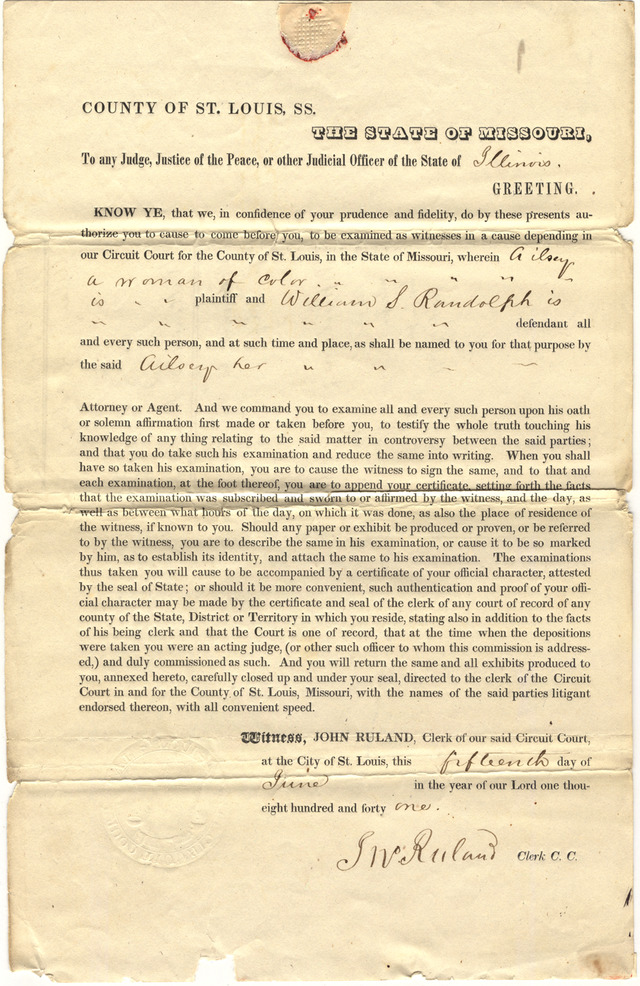 COUNTY OF ST. LOUIS, SS.
THE STATE OF MISSOURI,
To any Judge, Justice of the Peace, or other Judicial Officer of the State of Illinois.
GREETING.
KNOW YE, that we, in confidence of your prudence and fidelity, do by these presents au-
thorize you to cause to come before you, to be examined as witnesses in a cause depending in
our Circuit Court for the County of St. Louis, in the State of Missouri, wherein Ailsey
a woman of color. " " " " "
is " " plaintiff and William S. Randolph is
" " " " " " defendant all
and every such person, and at such time and place, as shall be named to you for that purpose by
the said Ailsey her " " " "
Attorney or Agent. And we command you to examine all and every such person upon his oath
or solemn affirmation first made or taken before you, to testify the whole truth touching his
knowledge of any thing relating to the said matter in controversy between the said parties;
and that you do take such his examination and reduce the same into writing. When you shall
have so taken his examination, you are to cause the witness to sign the same, and to that and
each examination, at the foot thereof, you are to append your certificate, setting forth the facts
that the examination was subscribed and sworn to or affirmed by the witness, and the day, as
well as between what hours of the day, on which it was done, as also the place of residence of
the witness, if known to you. Should any paper or exhibit be produced or proven, or be referred
to by the witness, you are to describe the same in his examination, or cause it to be so marked
by him, as to establish its identity, and attach the same to his examination. The examinations
thus taken you will cause to be accompanied by a certificate of your official character, attested
by the seal of State; or should it be more convenient, such authentication and proof of your offi-
cial character may be made by the certificate and seal of the clerk of any court of record of any
county of the State, District or Territory in which you reside, stating also in addition to the facts
of his being clerk and that the Court is one of record, that at the time when the depositions
were taken you were an acting judge, (or other such officer to whom this commission is address-
ed,) and duly commissioned as such. And you will return the same and all exhibits produced to
you, annexed hereto, carefully closed up and under your seal, directed to the clerk of the Circuit
Court in and for the County of St. Louis, Missouri, with the names of the said parties litigant
endorsed thereon, with all convenient speed.
Witness, JOHN RULAND, Clerk of our said Circuit Court,
at the City of St. Louis, this fifteenth day of
June in the year of our Lord one thou-
eight hundred and forty one.
Jno Ruland Clerk C. C.